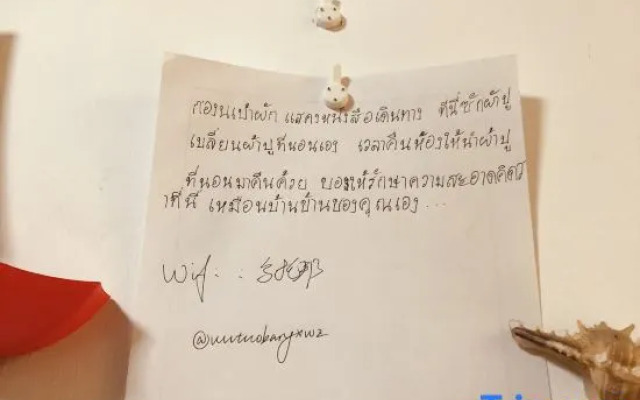 ก่อนเข้าพัก แสดงหนังสือเดินทาง ที่นี่ซักผ้าปู
เปลี่ยนผ้าปูที่นอนเอง เวลาคืนห้องให้นำผ้าปู
ที่นอนมาคืนด้วย ขอให้รักษาความสะอาดคิดว
่าที่นี่ เหมือนบ้านของคุณเอง...
Wifi :